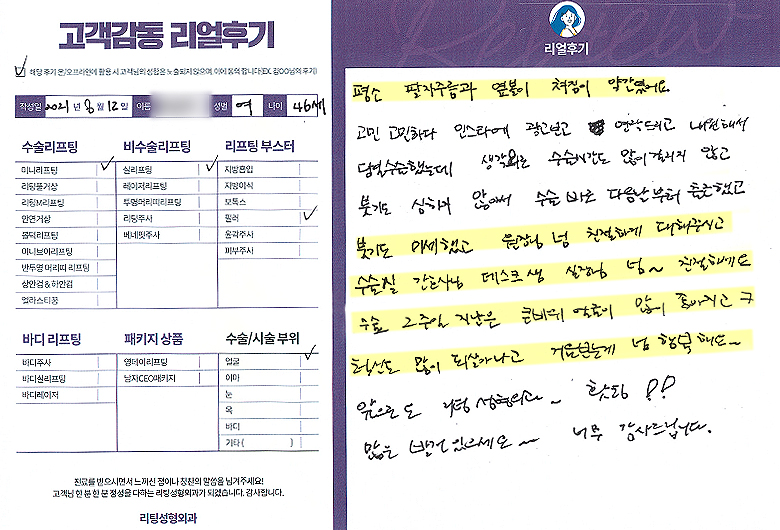 고객감동 리얼후기
해당 후기 온/오프라인에 활용 시 고객님의 성함은 노출되지 않으며, 이에 동의 합니다(EX. 김OO님의 후기)
작성일 2021년 8월 12일 이름 성별 여 나이 46세
수술리프팅
미니리프팅
리팅풀거상
리팅M리프팅
안면거상
볼턱리프팅
이니브이리프팅
반두영 머리띠 리프팅
상안검 & 하안검
엘라스티꿈
비수술리프팅
실리프팅
레이저리프팅
투명머리띠리프팅
리팅주사
베네핏주사
리프팅 부스터
지방흡입
지방이식
보톡스
필러
윤곽주사
피부주사
바디 리프팅
바디주사
바디실리프팅
바디레이저
패키지 상품
영데이리프팅
남자CEO패키지
수술/시술 부위
얼굴
이마
눈
목
바디
기타( )
진료를 받으시면서 느끼신 점이나 칭찬의 말씀을 남겨주세요!
고객님 한 분 한 분 정성을 다하는 리팅성형외과가 되겠습니다. 감사합니다.
리팅성형외과
Review
리얼후기
평소 팔자주름과 옆볼이 쳐짐이 약간였어요
고민 고민하다 인스타에 광고보고 연락드리고 내원해서
당일수술했는데 생각외로 수술시간도 많이 걸리지 않고
붓기도 심하지 않아서 수술 바로 다음날부터 출근했고
붓기도 미세했고 원장님 넘 친절하게 대해주시고
수술실 간호사님 데스크쌤 실장님 넘~ 친절하세요
수술 2주일 지난은 큰바위 얼굴이 많이 좋아지고
탄력도 많이 되살아나고 거울보는게 넘 행복해요~
앞으로도 리팅성형외과~ 홧팅!!
많은 발전 있으세요~ 너무 감사드립니다.